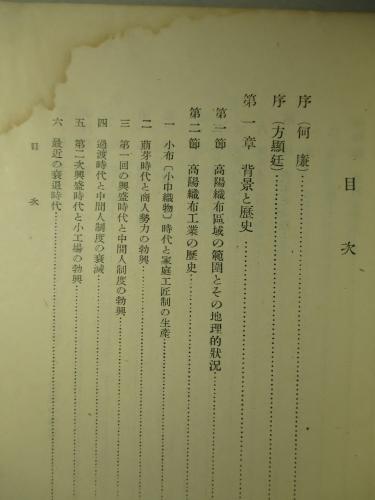 目次
序（何廉）
序（方顯廷）
第一章 背景と歷史
第一節 高陽織布區域の範圍とその地理的狀況
第二節 高陽織布工業の歷史
一 小布（小巾織物）時代と家庭工匠制の生産
二 萠芽時代と商人勢力の勃興
三 第一回の興盛時代と中間人制度の勃興
四 過渡時代と中間人制度の衰減
五 第二次興盛時代と小工場の勃興
六 最近の衰退時代
目次